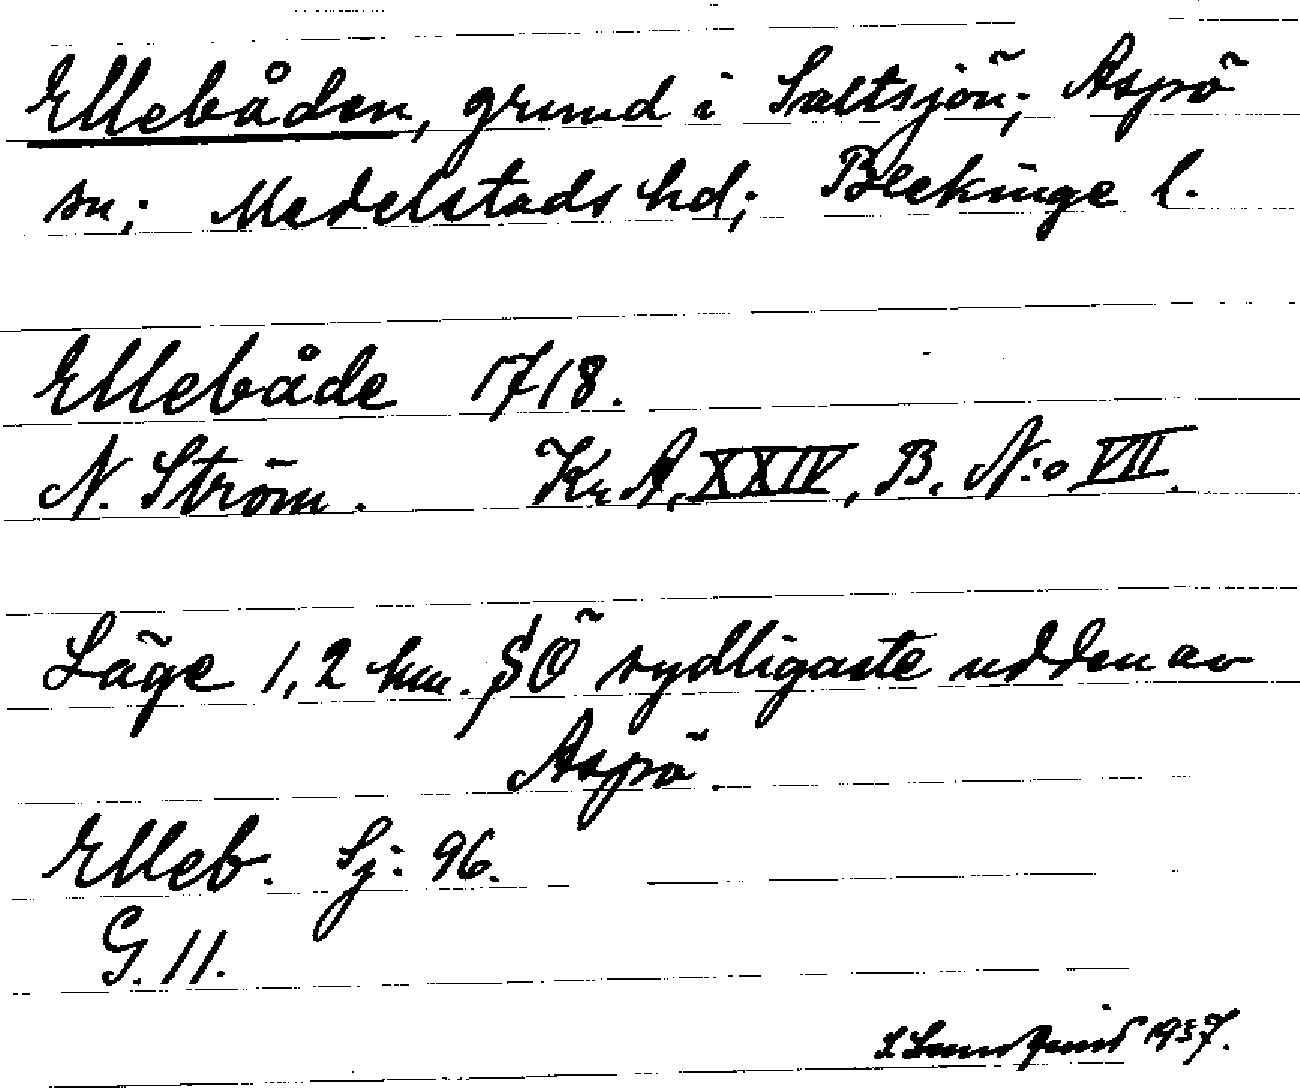 Ellebåden, grund i Saltsjön; Aspö
sn; Medelstads hd; Blekinge l.
Ellebåde 1718.
N. Ström. Kr. A, XXIV, B. N:o VII.
Läge 1,2 km. SÖ sydligaste udden av
Aspö.
Elleb. Sj: 96.
G. 11.
1937.